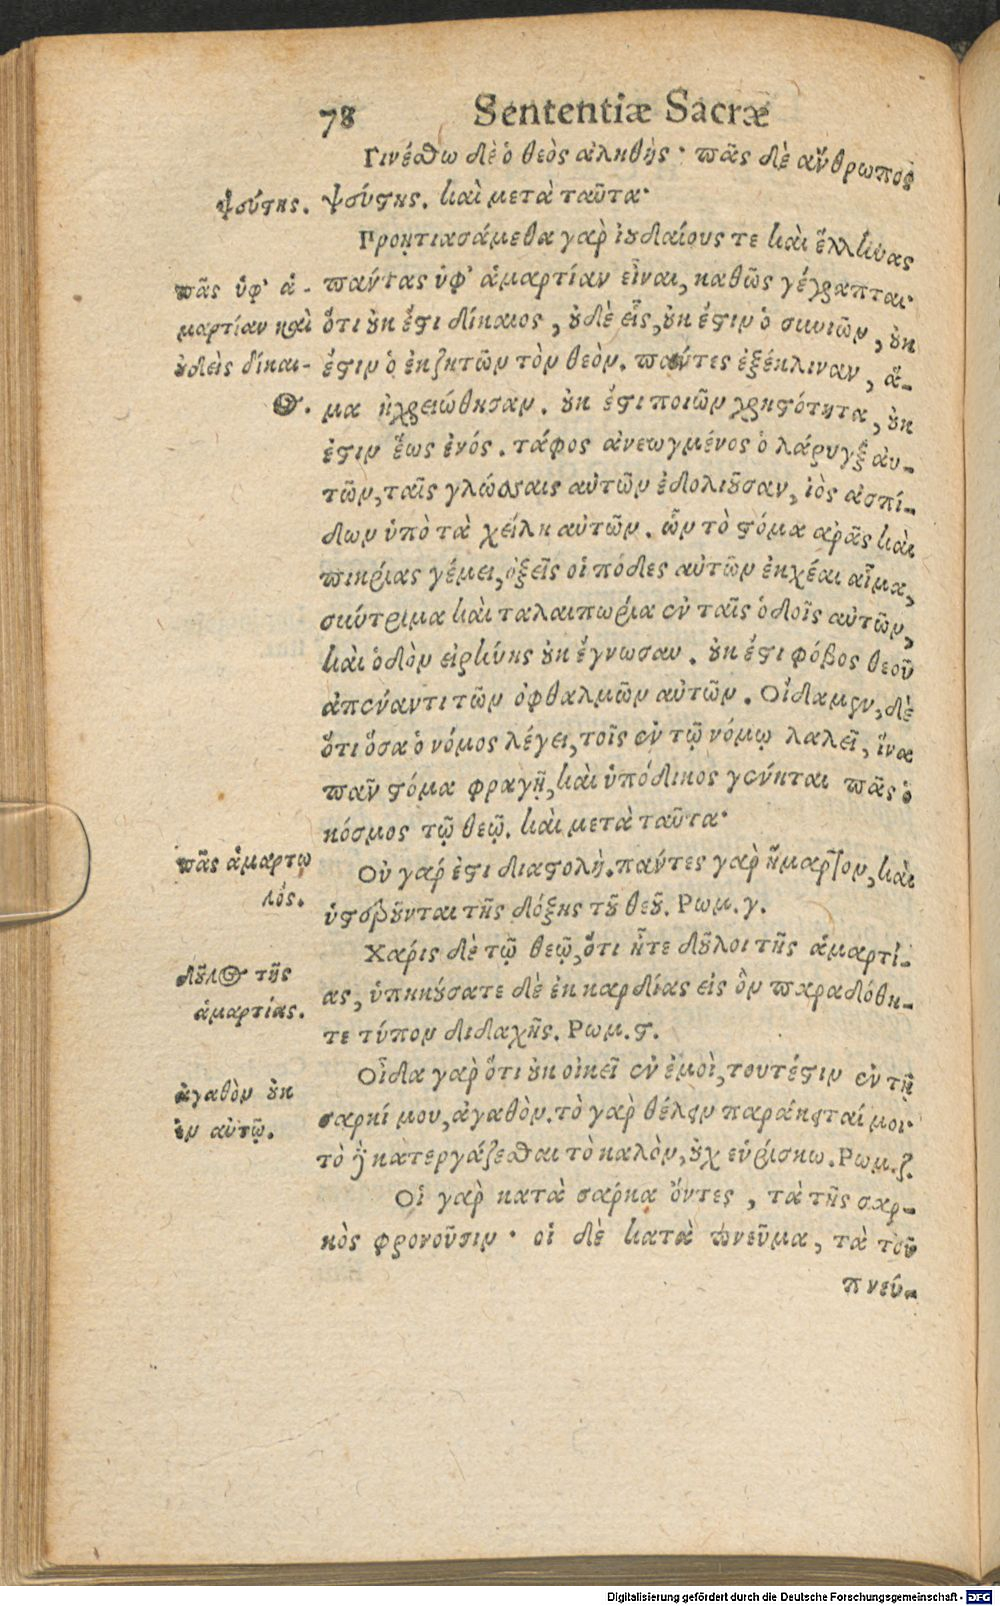 78 Sententiæ Sacræ
Γινέσθω δὲ ὁ θεὸς ἀληθής· πᾶς δὲ ἄνθρωπος
ψεύστης. ψεύστης. καὶ μετὰ ταῦτα·
Προητιασάμεθα γὰρ ἰουδαίους τε καὶ ἕλληνας
πᾶς ὑφ' ἁ- πάντας ὑφ' ἁμαρτίαν εἶναι, καθὼς γέγραπται·
μαρτίαν καὶ ὅτι οὐκ ἔστι δίκαιος, οὐδὲ εἷς, οὐκ ἔστιν ὁ συνιῶν, οὐκ
οὐδεὶς δίκαι- ἔστιν ὁ ἐκζητῶν τὸν θεόν. πάντες ἐξέκλιναν, ἅ-
ος. μα ἠχρειώθησαν. οὐκ ἔστι ποιῶν χρηστότητα, οὐκ
ἔστιν ἕως ἑνός. τάφος ἀνεωγμένος ὁ λάρυγξ αὐ-
τῶν, ταῖς γλώσσαις αὐτῶν ἐδολιοῦσαν, ἰὸς ἀσπί-
δων ὑπὸ τὰ χείλη αὐτῶν. ὧν τὸ στόμα ἀρᾶς καὶ
πικρίας γέμει, ὀξεῖς οἱ πόδες αὐτῶν ἐκχέαι αἷμα,
σύντριμμα καὶ ταλαιπωρία ἐν ταῖς ὁδοῖς αὐτῶν,
καὶ ὁδὸν εἰρήνης οὐκ ἔγνωσαν. οὐκ ἔστι φόβος θεοῦ
ἀπέναντι τῶν ὀφθαλμῶν αὐτῶν. Οἴδαμεν, δὲ
ὅτι ὅσα ὁ νόμος λέγει, τοῖς ἐν τῷ νόμῳ λαλεῖ, ἵνα
πᾶν στόμα φραγῇ, καὶ ὑπόδικος γένηται πᾶς ὁ
κόσμος τῷ θεῷ. καὶ μετὰ ταῦτα·
πᾶς ἁμαρτω Οὐ γάρ ἐστι διαστολή. πάντες γὰρ ἥμαρτον, καὶ
λός. ὑστεροῦνται τῆς δόξης τοῦ θεοῦ. Ρωμ. γ.
Χάρις δὲ τῷ θεῷ, ὅτι ἦτε δοῦλοι τῆς ἁμαρτί-
δοῦλος τῆς ας, ὑπηκούσατε δὲ ἐκ καρδίας εἰς ὃν παραδόθη-
ἁμαρτίας. τε τύπον διδαχῆς. Ρωμ. ϛ.
Οἶδα γὰρ ὅτι οὐκ οἰκεῖ ἐν ἐμοὶ, τουτέστιν ἐν τῇ
ἀγαθὸν οὐκ σαρκί μου, ἀγαθόν. τὸ γὰρ θέλειν παράκειταί μοι·
ἐν αὐτῷ. τὸ δὲ κατεργάζεσθαι τὸ καλὸν, οὐχ εὑρίσκω. Ρωμ. ζ.
Οἱ γὰρ κατὰ σάρκα ὄντες, τὰ τῆς σαρ-
κὸς φρονοῦσιν· οἱ δὲ κατὰ πνεῦμα, τὰ τοῦ
πνεύ-
Digitalisierung gefördert durch die Deutsche Forschungsgemeinschaft - DFG